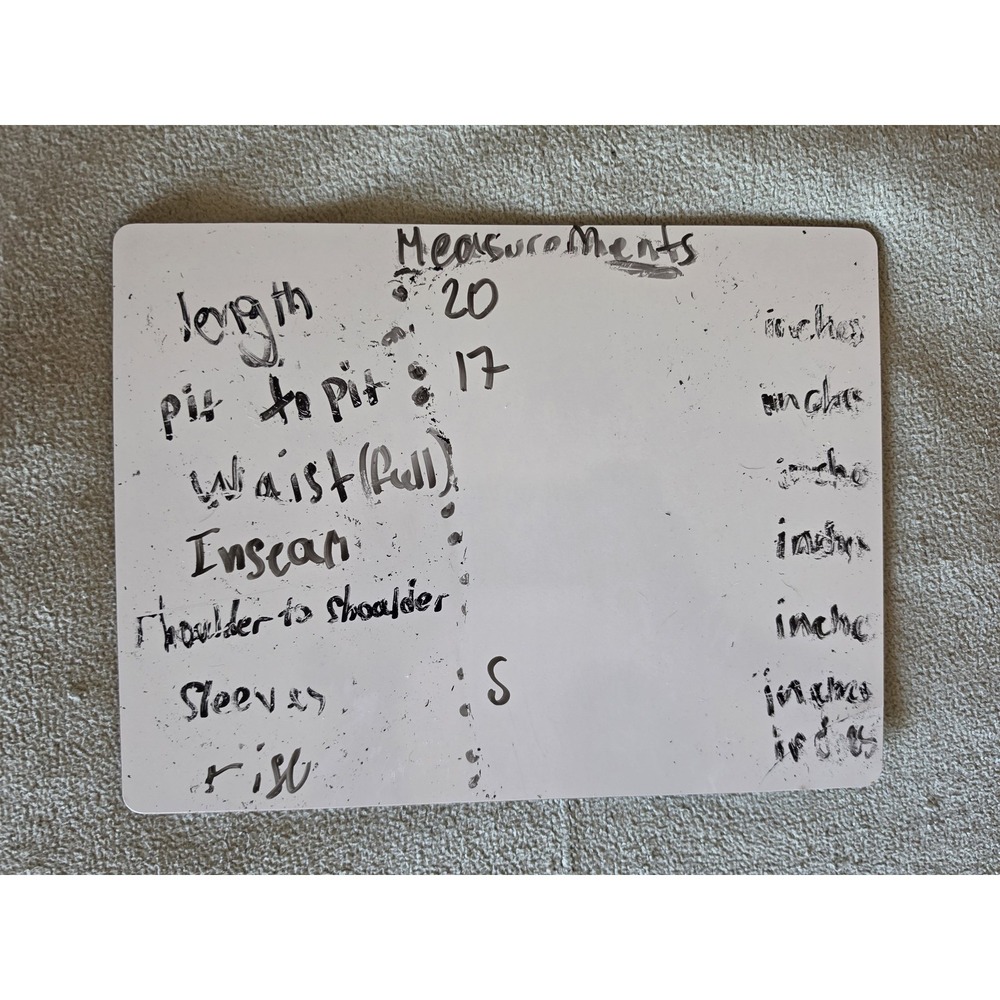 Measurements
length : 20 inches
pit to pit : 17 inches
Waist (full) : inches
Inseam : inches
Shoulder to Shoulder : inches
Sleeves : 5 inches
rise : inches